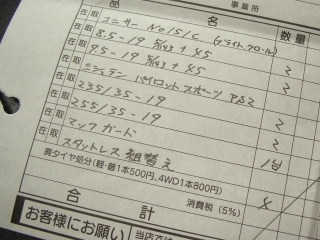 事業所
品 名 数量
在取 コニサー No 151C (ブライトクロール)
在取 8.5-19 5/143 +45 2
在取 9.5-19 5/143 +45 2
在取 ミシュラン パイロット スポーツ PS2
在取 235/35-19 2
在取 255/35-19 2
在取 マックガード 1台
在取 スタットレス 組替え 4
廃タイヤ処分(軽・普1本500円、4WD1本800円)
消費税(5%)
合計
お客様にお願い
当店では